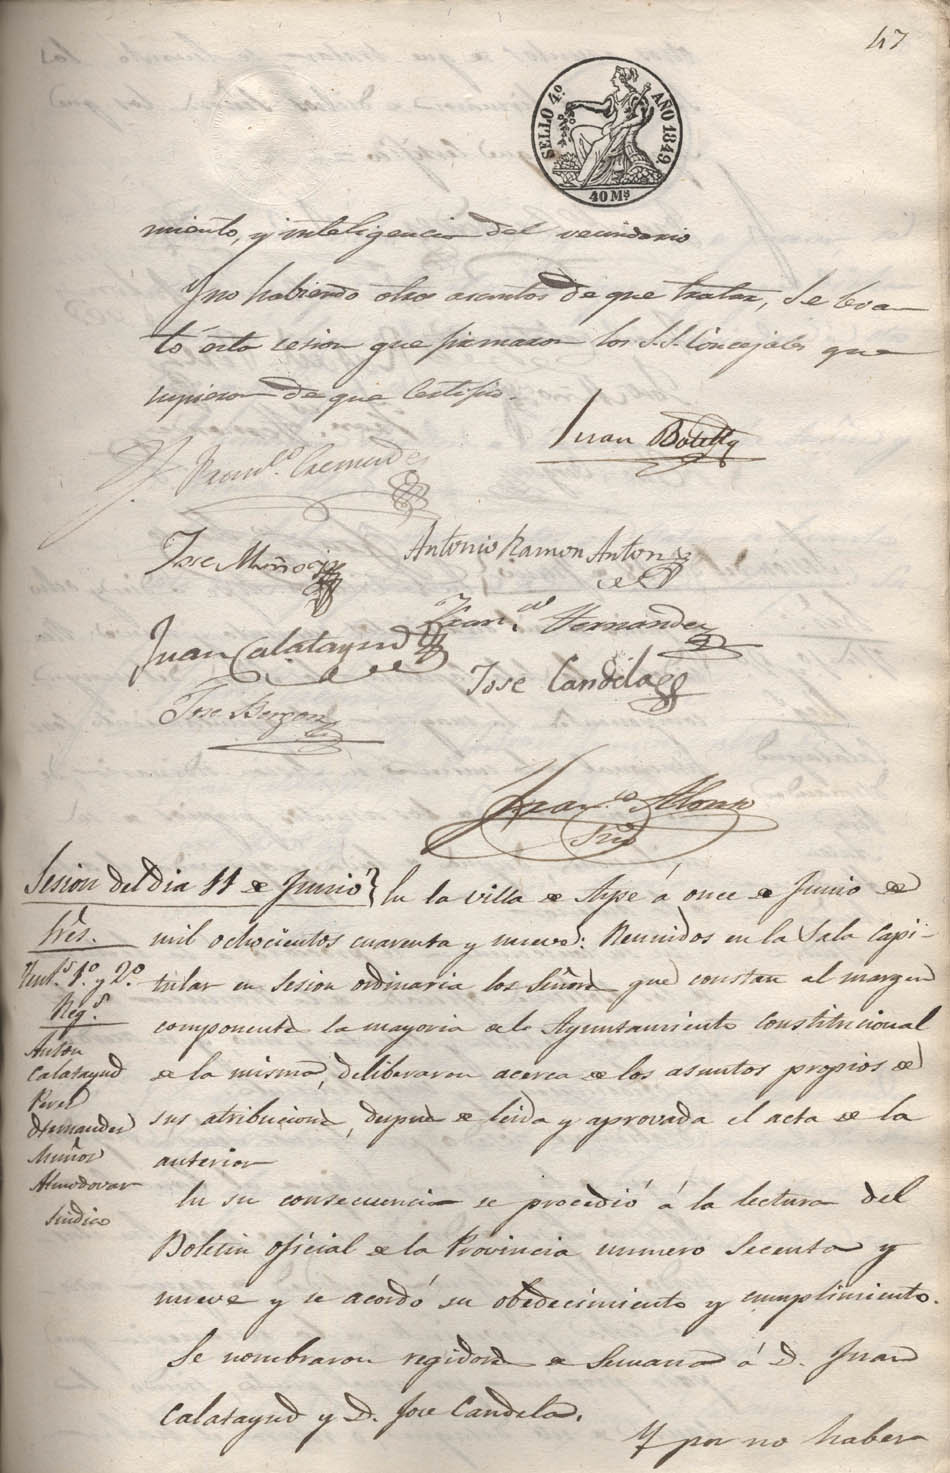 47
SELLO 4º AÑO 1849.
40 Mˢ
miento, y inteligencia del vecindario
Y no habiendo otros asuntos de que tratar, se levan
tó esta cesion que firmaron los S.S. Concejales que
supieron de que Certifico.
Juan Botella
Franᶜᵒ
Jose Muñoz
Antonio Ramon Anton
Juan Calatayud
Franᶜᵒ Hernandez
Jose Candela
Jose
Franᶜᵒ Alonso
Srio
Sesion del dia 11 de Junio
Sres.
Tentˢ 1º y 2º
Regˢ
Anton
Calatayud
Perez
Hernandez
Muñoz
Almodovar
Sindico
En la villa de Aspe á once de Junio de
mil ochocientos cuarenta y nueve: Reunidos en la Sala Capi-
tular en Sesion ordinaria los Señores que constan al margen
componentes la mayoria de le Ayuntamiento constitucional
de la misma, deliberaron acerca de los asuntos propios de
sus atribuciones, despues de leida y aprovada el acta de la
anterior
En su consecuencia se procedió á la lectura del
Boletin oficial de la Provincia numero Secenta y
nueve y se acordó su obedecimiento y cumplimiento.
Se nombraron regidores de Semana á D. Juan
Calatayud y D. Jose Candela.
Y por no haber